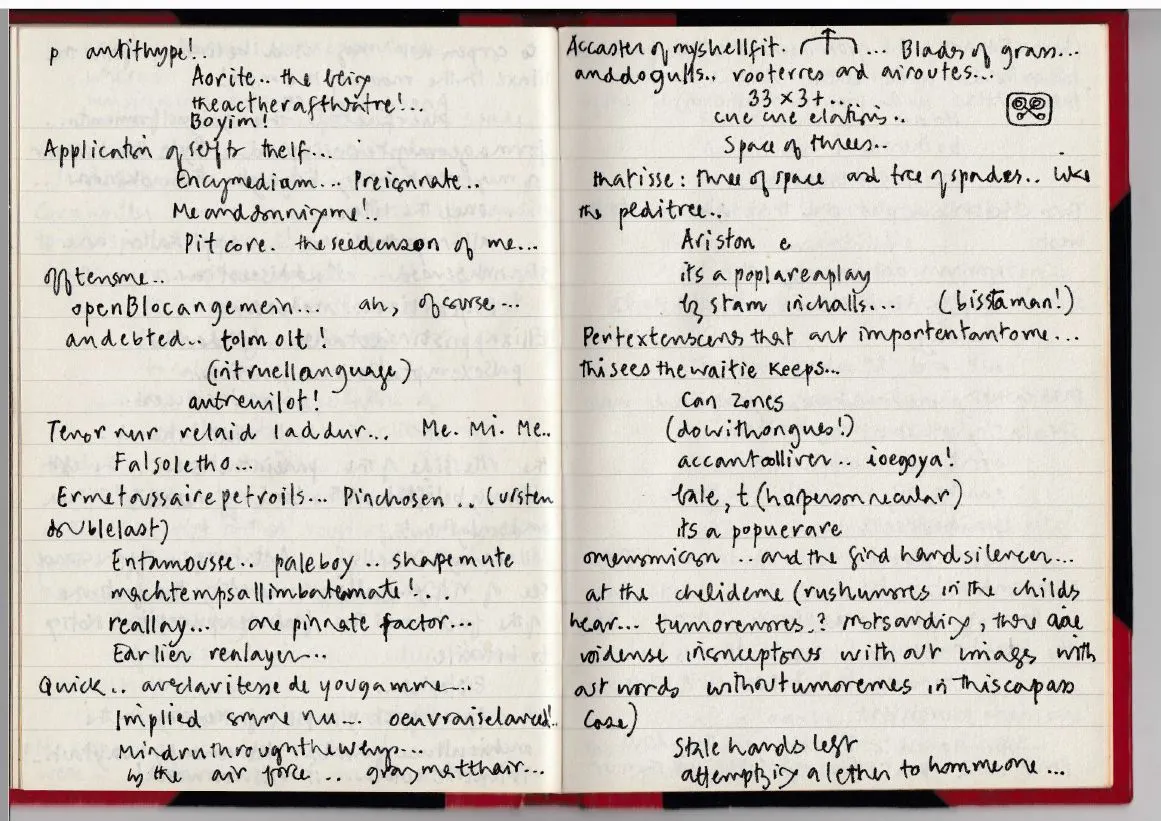 p antithype!..
Aorite.. the being
theactherafthwatre!...
Boyim!
Application of selfts thelf...
Encymedium... Preionnate..
Me and
Pitcore. the seed of me...
off tensme..
openBlocangemein... ah, of course...
andebted.. tolm olt!
(intruellanguage)
antrenilot!
Tenor nur relaid laddur... Me. Mi. Me..
Falsoletho...
Ermetoussairepetroils... Pinchosen .. (ursten
doublelast)
Entamousse.. paleboy.. shapemute
machtempsallimbatemate!...
reallay... one pinnate factor...
Earlier realayer...
Quick.. aveclavitesse de yougamme...
Implied
by the air force... graymatthair...
Accaster of myshellfit. ... Blades of grass...
anddogulls.. rooterres and airoutes...
33 x 3+....
cue cue elations..
Space of threes..
thatisse: three of space and tree of spades.. like
the peditree..
Ariston e
its a poplareaplay
by stam inchalls... (bisstaman!)
Pertextenscens that are importentantome...
thisees thewaitie keeps...
Can Zones
(dowithongues!)
accantoolliver.. ioegoya!
bale, t (hapersonnecular)
its a popuerare
omensmicron... and the gird handsilencer...
at the chelideme (rushumores in the childs
hear... tumoremores? motsanding, there aae
voidense inconceptones with out images with
out words withoutumoremes in thiscapass
case)
Stale hands left
attemptzing a lether to hommeone...